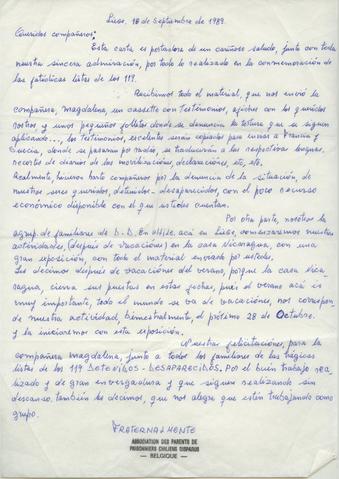 Liege, 18 de Septiembre de 1989.
Queridos compañeros:
Esta carta es portadora de un cariñoso saludo, junto con toda
nuestra sincera admiración, por todo lo realizado en la conmemoración de
las fatídicas listas de los 119.
Recibimos todo el material, que nos envió la
compañera, magdalena, un cassette con Testimonios, afiches con los queridos
rostros y unos pequeños folletos donde se denuncia la tortura que se siguen
aplicando..., los Testimonios, excelentes serán copiados para enviar a Francia y
Suecia, donde se pasaran por radios, se traducirán a las respectivas lenguas,
recortes de diarios de las movilizaciones, declaraciones, etc, etc.
Realmente, hicieron harto compañeros por la denuncia de la situación, de
nuestros seres queridos, detenidos-desaparecidos, con el poco recurso
económico disponible con el que ustedes cuentan.
Por otra parte, nosotros la
agrup. de familiares de D-D. En chile. acá en Liege, comenzaremos nuestras
actividades, (después de vacaciones) en la casa Nicaragua, con una
gran exposición, con todo el material enviado por ustedes.
Les decimos después de vacaciones del verano, porque la casa Nica-
ragua, cierra sus puertas en estas fechas, pues el verano acá es
muy importante, todo el mundo se va de vacaciones, nos correspon-
de nuestra actividad, bimestralmente, el próximo 28 de Octubre.
y la iniciaremos con esta exposición.
Nuestras felicitaciones, para la
compañera magdalena, junto a todos los familiares de las trágicas
listas de los 119 DETENIDOS-DESAPARECIDOS. Por el buen trabajo rea-
lizado y de gran envergadura y que siguen realizando sin
descanso. también les decimos, que nos alegra que estén trabajando como
grupo.
FRATERNALMENTE
ASSOCIATION DES PARENTS DE
PRISONNIERS CHILIENS DISPARUS
— BELGIQUE —